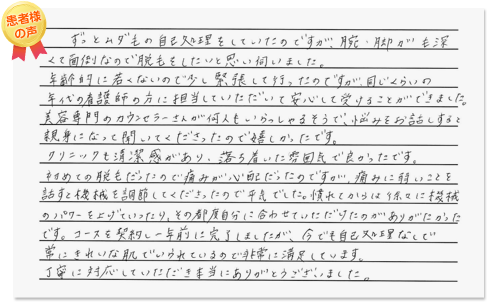 患者様
の声
ずっとムダ毛の自己処理をしていたのですが、腕・脚が毛深
くて面倒なので脱毛をしたいと思い伺いました。
年齢的に若くないので少し緊張して行ったのですが、同じくらいの
年代の看護師の方に担当していただいて安心して受けることができました。
美容専門のカウンセラーさんが何人もいらっしゃるそうで、悩みをお話しすると
親身になって聞いてくださったので嬉しかったです。
クリニックも清潔感があり、落ち着いた雰囲気で良かったです。
初めての脱毛だったので痛みが心配だったのですが、痛みに弱いことを
話すと機械を調節してくださったので平気でした。慣れてからは徐々に機械
のパワーを上げていったり、その都度自分に合わせていただけたのがありがたかった
です。コースを契約し一年前に完了しましたが、今でも自己処理なしで
常にきれいな肌でいられているので非常に満足しています。
丁寧に対応していただき本当にありがとうございました。